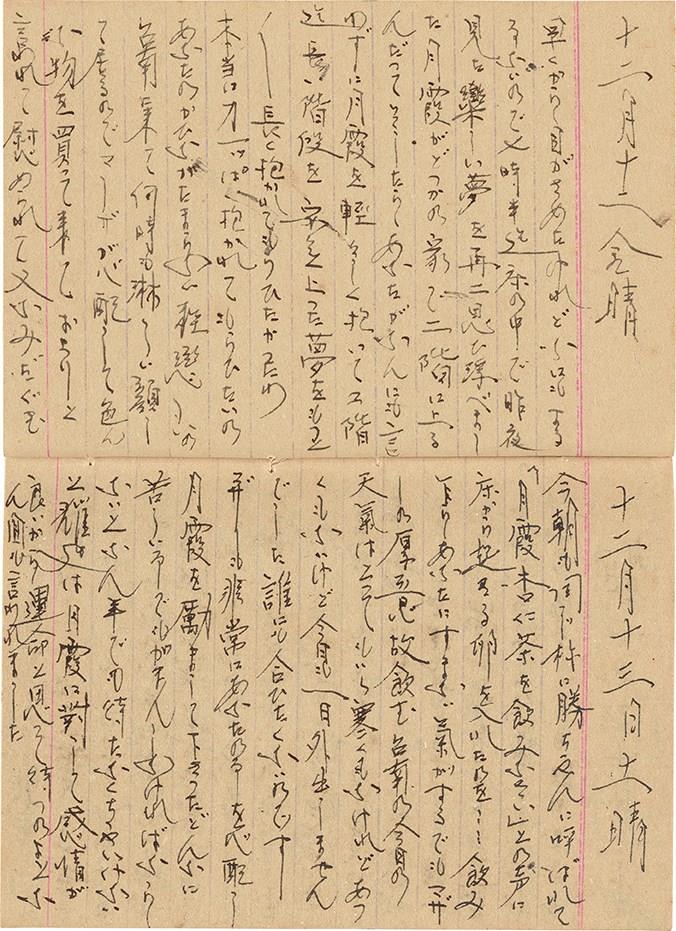 十二月十二 金 晴
早くから目がさめたけれど
ないので七時半迄床の中で昨夜
見た樂しい夢を再二思ひ浮べまし
た月霞がどつかの家で二階に上る
んだつて あなたがなんにも言
はずに月霞を輕々しく抱いて二階
迄長い階段を 上つた夢を
長く抱かれてもらひたかつたわ
本当に力一ッぱい抱かれてもらひたいの
あなたのが たまらない程戀しいの
台南に来て何時も淋しい顔し
て居るのでマーが心配して色ん
な物を買つて来ておよりと
言われて慰められて又なみだぐむ
十二月十三日 土 晴
今朝も に勝ちゃんに呼ばれて
「月霞杏仁茶を飲みなさい」との声に
床から起きる卵を入れたのを 飲み
よりあなたにすまない気がするでもマザ
ーの厚意故飲む台南の今日の
天氣はとてもいい寒くもなけれどあつ
くもないけど今日も一日外出しません
でした誰にも会ひたくないのです
非常にあなたの事を心配し
月霞を勵まして下さつたどんなに
苦しい事でもがまんしなければならな
いと 年でも待たなくちやいけない
と 又は月霞に對して感情が
良いから運命と思て待つのよと
ん 言われました